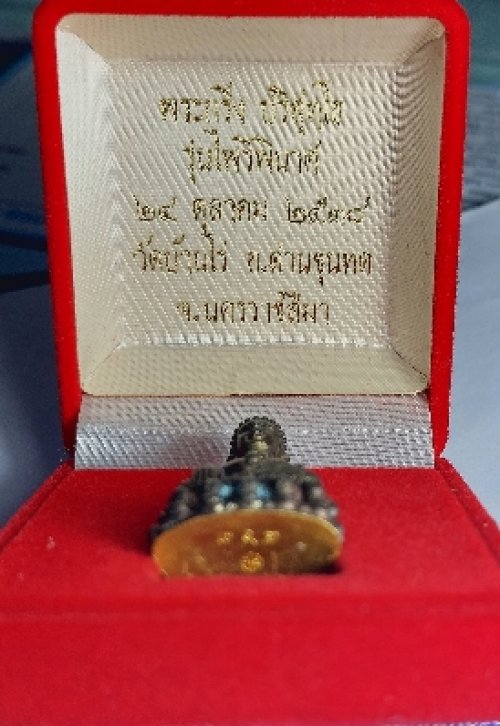 พระกริ่ง ปริสุทฺโธ
รุ่นไพรีพินาศ
๒๔ ตุลาคม ๒๕๓๘
วัดบ้านไร่ อ.ด่านขุนทด
จ.นครราชสีมา